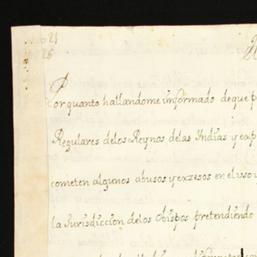 621
26
Por quanto hallandome informado de que p
Regulares delos Reynos delas Indias y exp
cometen algunos abusos y exzesos en el uso y
la Jurisdiccion delos Obispos pretendiendo